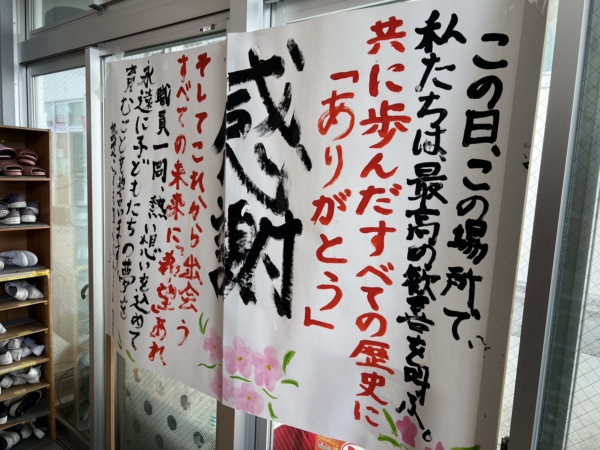 この日、この場所で、
私たちは、最高の歓喜を叫ぶ。
共に歩んだすべての歴史に
「ありがとう」
感謝
そしてこれから出会う
すべての未来に希望あれ、
職員一同、熱い想いを込めて
永遠に子どもたちの夢を
育むことを